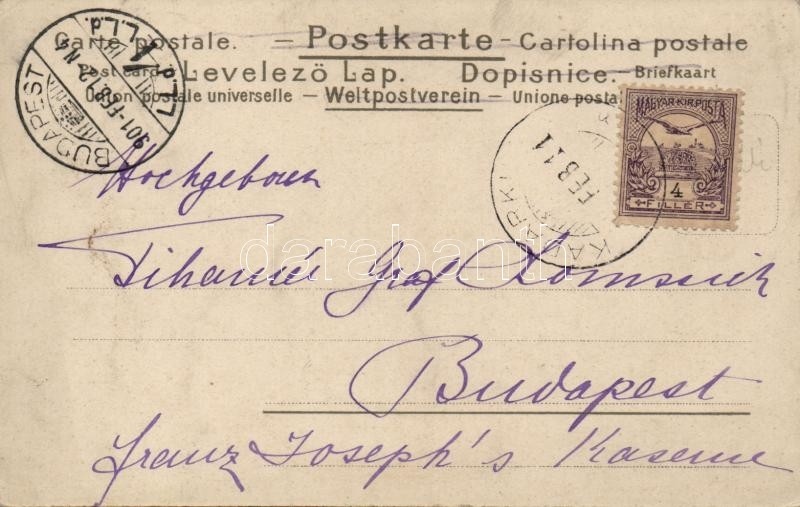 Carte postale. — Postkarte — Cartolina postale
Levelező Lap. Dopisnice. — Briefkaart
Union postale universelle — Weltpostverein — Unione posta
BUDAPEST
901 FEB
FEB 11
MAGYAR KIR. POSTA
4
FILLÉR
darabanth
Hochgeboren
Tihamér Graf
Budapest
Franz Joseph's Kaserne